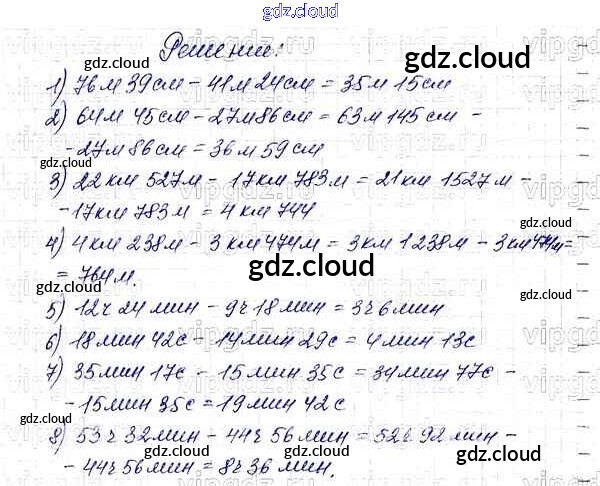 gdz.cloud
Решение:
gdz.cloud
1) 76м 39см - 41м 24см = 35м 15см
2) 64м 45см - 27м 86см = 63м 145см -
- 27м 86см = 36м 59см
gdz.cloud
3) 22км 527м - 17км 783м = 21км 1527м -
- 17км 783м = 4км 744
gdz.cloud
4) 4км 238м - 3км 474м = 3км 1238м - 3км 474м =
= 764м.
gdz.cloud
gdz.cloud
5) 12ч 24мин - 9ч 18мин = 3ч 6мин
6) 18мин 42с - 14мин 29с = 4мин 13с
7) 35мин 17с - 15мин 35с = 34мин 77с -
- 15мин 35с = 19мин 42с
gdz.cloud
gdz.cloud
8) 53ч 32мин - 44ч 56мин = 52ч 92мин -
- 44ч 56мин = 8ч 36мин.
gdz.cloud